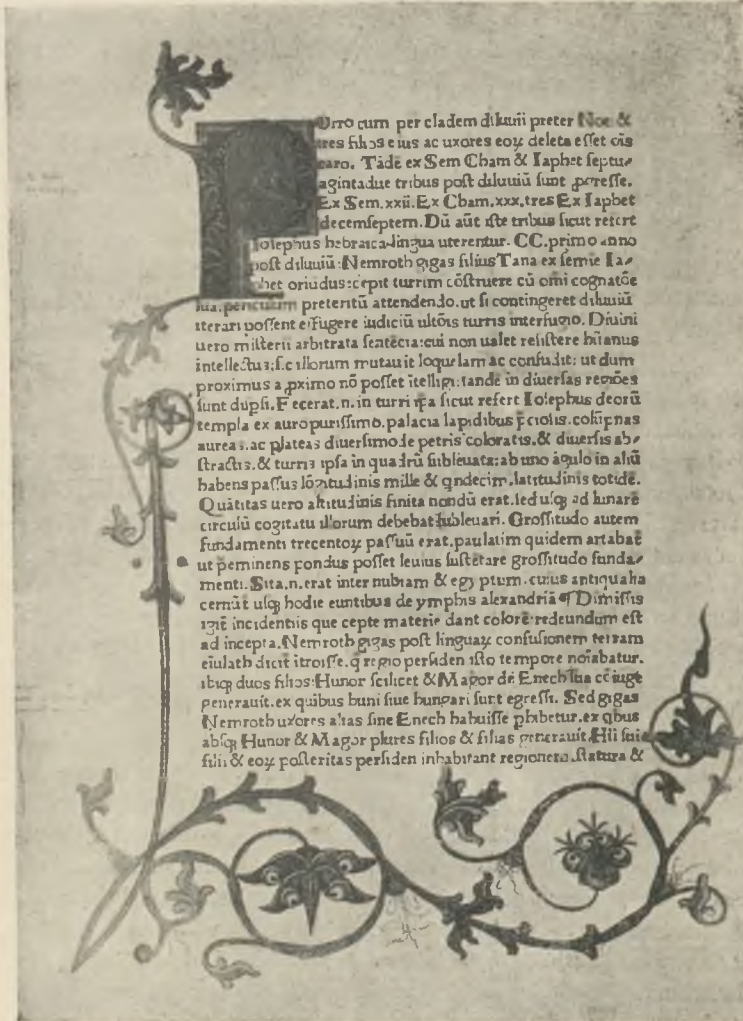 Orro cum per cladem diluuii preter Noe &
tres filios eius ac uxores eoꝝ deleta eſſet oīs
caro. Tādē ex Sem Cham & Iaphet ſeptu⸗
agintadue tribus poſt diluuiū ſunt ꝓgreſſe.
Ex Sem.xxii. Ex Cham.xxx.tres Ex Iaphet
decemſeptem. Dū aūt iſte tribus ſicut refert
Ioſephus hebraica lingua uterentur. CC.primo anno
poſt diluuiū: Nemroth gigas filius Tana ex ſemie Ia⸗
phet oriūdus: cepit turrim cōſtruere cū omi cognatōe
ſua.periculum preteritū attendendo.ut ſi contingeret diluuiū
iterari poſſent effugere iudiciū ultōis turris interfugio. Diuini
uero miſterii arbitrata ſentēcia: cui non ualet reſiſtere hūanus
intellectus; ſic illorum mutauit loquelam ac confudit: ut dum
proximus a ꝓximo nō poſſet ītelligi: tandē in diuerſas regiōes
ſunt diſpſi. Fecerat.n.in turri ip̄a ſicut refert Ioſephus deorū
templa ex auro puriſſimo.palacia lapidibus p̄cioſis.colūpnas
aureas.ac plateas diuerſimode petris coloratis.& diuerſis ab⸗
ſtractis.& turris ipſa in quadrū ſubleuata: ab uno āgulo in aliū
habens paſſus lōgitudinis mille & qndecim.latitudinis totidē.
Quātitas uero altitudinis finita nondū erat.ſed uſqꝫ ad lunarē
circulū cogitatu illorum debebat ſubleuari. Groſſitudo autem
fundamenti trecentoꝝ paſſuū erat.paulatim quidem artabat̄
ut p̲eminens pondus poſſet leuius ſuſtētare groſſitudo funda⸗
menti. Sita.n.erat inter nubiam & egyptum.cuius antiqualia
cernūt̄ uſqꝫ hodie euntibus de ymphis alexandriā ¶ Dimiſſis
igit̄ incidentiis que cepte materie dant colorē: redeundum eſt
ad incepta. Nemroth gigas poſt linguaꝝ confuſionem terram
eiulath dicit̄ ītroiſſe.q̄ regio perſiden iſto tempore noīabatur.
ibiqꝫ duos filios: Hunor ſcilicet & Magor de Enech ſua cōiuge
generauit.ex quibus huni ſiue hungari ſunt egreſſi. Sed gigas
Nemroth uxores alias ſine Enech habuiſſe phibetur.ex qbus
abſqꝫ Hunor & Magor plures filios & filias generauit. Hii ſui
filii & eoꝝ poſteritas perſiden inhabitant regionem.ſtatura &